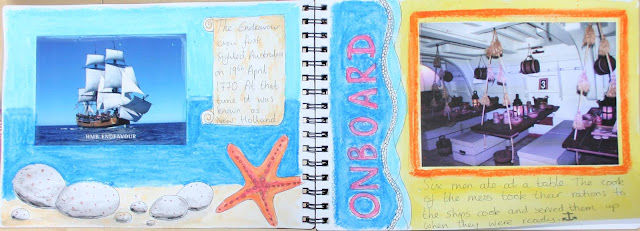 The Endeavour
crew first
sighted Australia
on 19th April
1770. At that
time it was
known as
New Holland
HMB ENDEAVOUR
ONBOARD
3
Six men ate at a table. The cook
of the mess took their rations to
the ships cook and served them up
when they were ready.